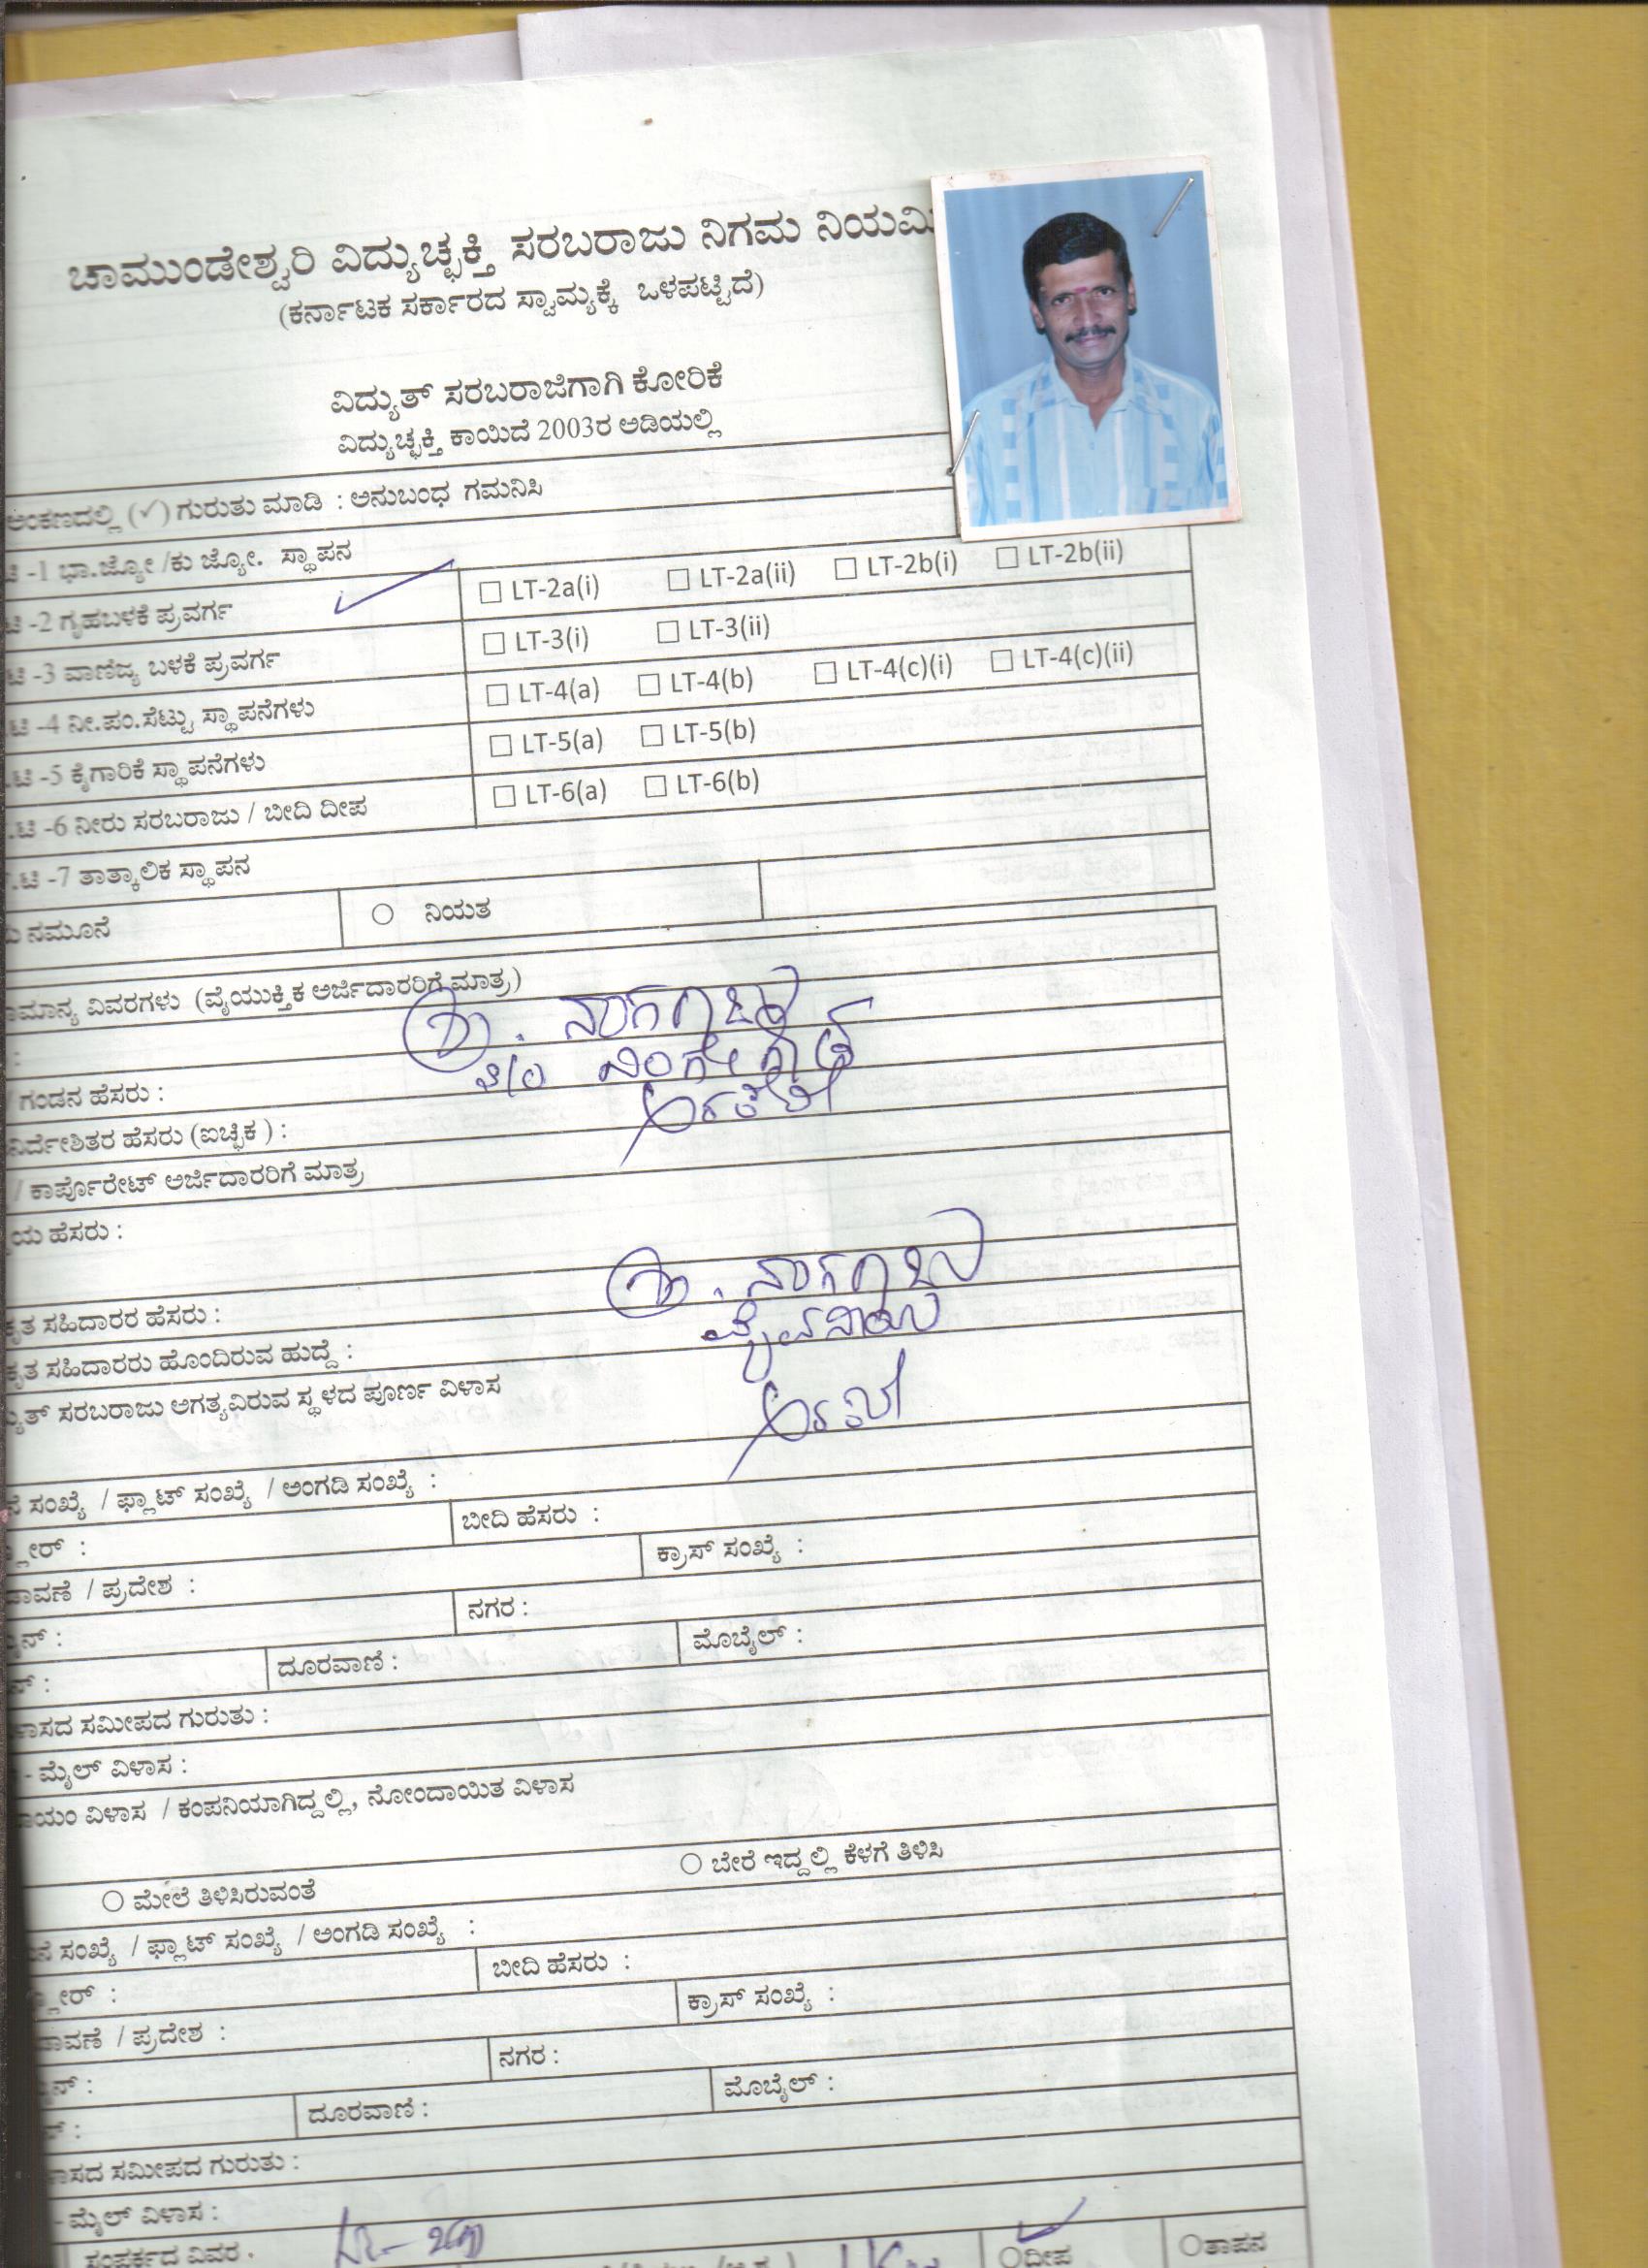 ಚಾಮುಂಡೇಶ್ವರಿ ವಿದ್ಯುಚ್ಛಕ್ತಿ ಸರಬರಾಜು ನಿಗಮ ನಿಯಮಿ
(ಕರ್ನಾಟಕ ಸರ್ಕಾರದ ಸ್ವಾಮ್ಯಕ್ಕೆ ಒಳಪಟ್ಟಿದೆ)
ವಿದ್ಯುತ್ ಸರಬರಾಜಿಗಾಗಿ ಕೋರಿಕೆ
ವಿದ್ಯುಚ್ಛಕ್ತಿ ಕಾಯಿದೆ 2003ರ ಅಡಿಯಲ್ಲಿ
ಅಂಕಣದಲ್ಲಿ (✓) ಗುರುತು ಮಾಡಿ : ಅನುಬಂಧ ಗಮನಿಸಿ
ಟಿ -1 ಭಾ.ಜ್ಯೋ /ಕು ಜ್ಯೋ. ಸ್ಥಾಪನ
ಟಿ -2 ಗೃಹಬಳಕೆ ಪ್ರವರ್ಗ ✓ ☐ LT-2a(i) ☐ LT-2a(ii) ☐ LT-2b(i) ☐ LT-2b(ii)
ಟಿ -3 ವಾಣಿಜ್ಯ ಬಳಕೆ ಪ್ರವರ್ಗ ☐ LT-3(i) ☐ LT-3(ii)
ಟಿ -4 ನೀ.ಪಂ.ಸೆಟ್ಟು ಸ್ಥಾಪನೆಗಳು ☐ LT-4(a) ☐ LT-4(b) ☐ LT-4(c)(i) ☐ LT-4(c)(ii)
.ಟಿ -5 ಕೈಗಾರಿಕೆ ಸ್ಥಾಪನೆಗಳು ☐ LT-5(a) ☐ LT-5(b)
.ಟಿ -6 ನೀರು ಸರಬರಾಜು / ಬೀದಿ ದೀಪ ☐ LT-6(a) ☐ LT-6(b)
.ಟಿ -7 ತಾತ್ಕಾಲಿಕ ಸ್ಥಾಪನ
ನಮೂನೆ ○ ನಿಯತ
ಾಮಾನ್ಯ ವಿವರಗಳು (ವೈಯುಕ್ತಿಕ ಅರ್ಜಿದಾರರಿಗೆ ಮಾತ್ರ)
:
/ ಗಂಡನ ಹೆಸರು :
ನಿರ್ದೇಶಿತರ ಹೆಸರು (ಐಚ್ಛಿಕ ) :
/ ಕಾರ್ಪೊರೇಟ್ ಅರ್ಜಿದಾರರಿಗೆ ಮಾತ್ರ
ಯ ಹೆಸರು :
ಕೃತ ಸಹಿದಾರರ ಹೆಸರು :
ಕೃತ ಸಹಿದಾರರು ಹೊಂದಿರುವ ಹುದ್ದೆ :
್ಯುತ್ ಸರಬರಾಜು ಅಗತ್ಯವಿರುವ ಸ್ಥಳದ ಪೂರ್ಣ ವಿಳಾಸ
ನೆ ಸಂಖ್ಯೆ / ಫ್ಲಾಟ್ ಸಂಖ್ಯೆ / ಅಂಗಡಿ ಸಂಖ್ಯೆ :
್ಲೋರ್ : ಬೀದಿ ಹೆಸರು :
ಾವಣೆ / ಪ್ರದೇಶ : ಕ್ರಾಸ್ ಸಂಖ್ಯೆ :
ನ್ : ನಗರ :
ನ್ : ದೂರವಾಣಿ : ಮೊಬೈಲ್ :
ಾಸದ ಸಮೀಪದ ಗುರುತು :
- ಮೈಲ್ ವಿಳಾಸ :
ಾಯಂ ವಿಳಾಸ / ಕಂಪನಿಯಾಗಿದ್ದಲ್ಲಿ, ನೋಂದಾಯಿತ ವಿಳಾಸ
○ ಮೇಲೆ ತಿಳಿಸಿರುವಂತೆ ○ ಬೇರೆ ಇದ್ದಲ್ಲಿ ಕೆಳಗೆ ತಿಳಿಸಿ
ನೆ ಸಂಖ್ಯೆ / ಫ್ಲಾಟ್ ಸಂಖ್ಯೆ / ಅಂಗಡಿ ಸಂಖ್ಯೆ :
್ಲೋರ್ : ಬೀದಿ ಹೆಸರು :
ಾವಣೆ / ಪ್ರದೇಶ : ಕ್ರಾಸ್ ಸಂಖ್ಯೆ :
ನ್ : ನಗರ :
ನ್ : ದೂರವಾಣಿ : ಮೊಬೈಲ್ :
ಾಸದ ಸಮೀಪದ ಗುರುತು :
- ಮೈಲ್ ವಿಳಾಸ :
ಸಂಪರ್ಕದ ವಿವರ . ○ದೀಪ ○ತಾಪನ